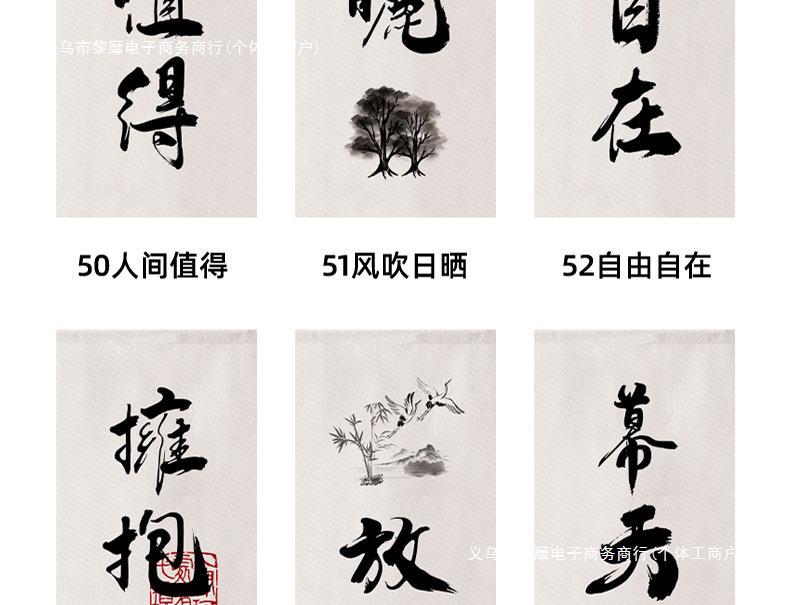 值
曬
自
义乌市黎靡电子商务商行(个体工商户)
得
在
50人间值得
51风吹日晒
52自由自在
擁
幕
抱
放
天
义乌市黎靡电子商务商行(个体工商户)